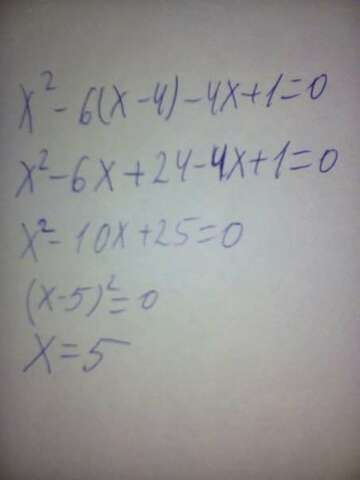 x² - 6(x - 4) - 4x + 1 = 0
x² - 6x + 24 - 4x + 1 = 0
x² - 10x + 25 = 0
(x - 5)² = 0
x = 5